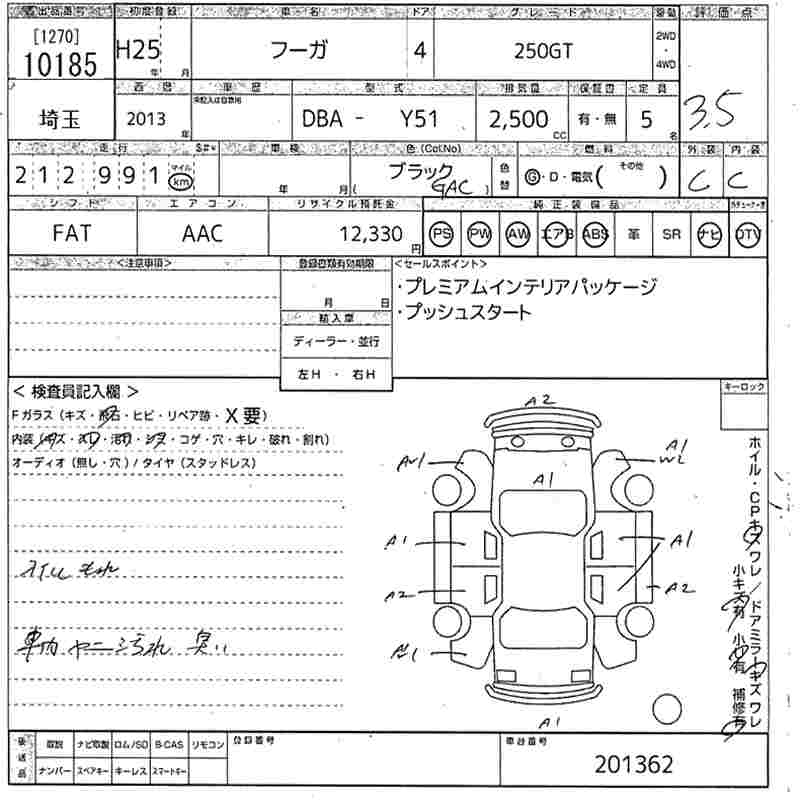 出品番号 初度登録 車名 ドア グレード 駆動 評価点
[1270]
10185 H25 年 月 フーガ 4 250GT 2WD・4WD
3.5
西暦 車歴 型式 排気量 保証書 定員
未記入は自家用
埼玉 2013 年 DBA - Y51 2,500 CC 有・無 5 名
走行 $#* 車検 色(Col.No) 燃料 外装 内装
212991 マイル km 年 月 ブラック (GAC) 色替 G・D・電気( その他 ) C C
シフト エアコン リサイクル預託金 純正・装備品
FAT AAC 12,330 円 PS PW AW エアB ABS 革 SR ナビ DTV
<注意事項> 登録書類有効期限 <セールスポイント>
月 日
・プレミアムインテリアパッケージ
・プッシュスタート
輸入車
ディーラー・並行
左H ・ 右H
< 検査員記入欄 > キーロック
Fガラス(キズ・飛石・ヒビ・リペア跡・X要)
オーディオ(無し・穴)/タイヤ(スタッドレス)
A2
A1
A1
W2
A1
A1
A1
A2
A2
A1
オイルもれ
車内 ヤニ 汚れ 臭い
ホイル・CPキズワレ/ドアミラーキズワレ
小キズ有 小凹有 補修有
後送品 取説 ナビ取説 ロム/SD B-CAS リモコン 登録番号 車台番号
ナンバー スペアキー キーレス スマートキー
201362